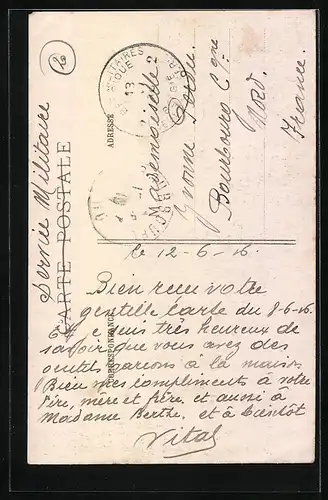 Service Militaire
CARTE POSTALE
ADRESSE
13
Mademoiselle
Yvonne
Bourbourg Cgne
Nord.
France.
CORRESPONDANCE
le 12-6-16.
Bien reçu votre
gentille carte du 8-6-16.
je suis très heureux de
savoir que vous avez des
gentils garçons à la maison
Bien mes compliments à votre
Père, mère et frère, et aussi à
Madame Berthe. et à bientôt
Vital